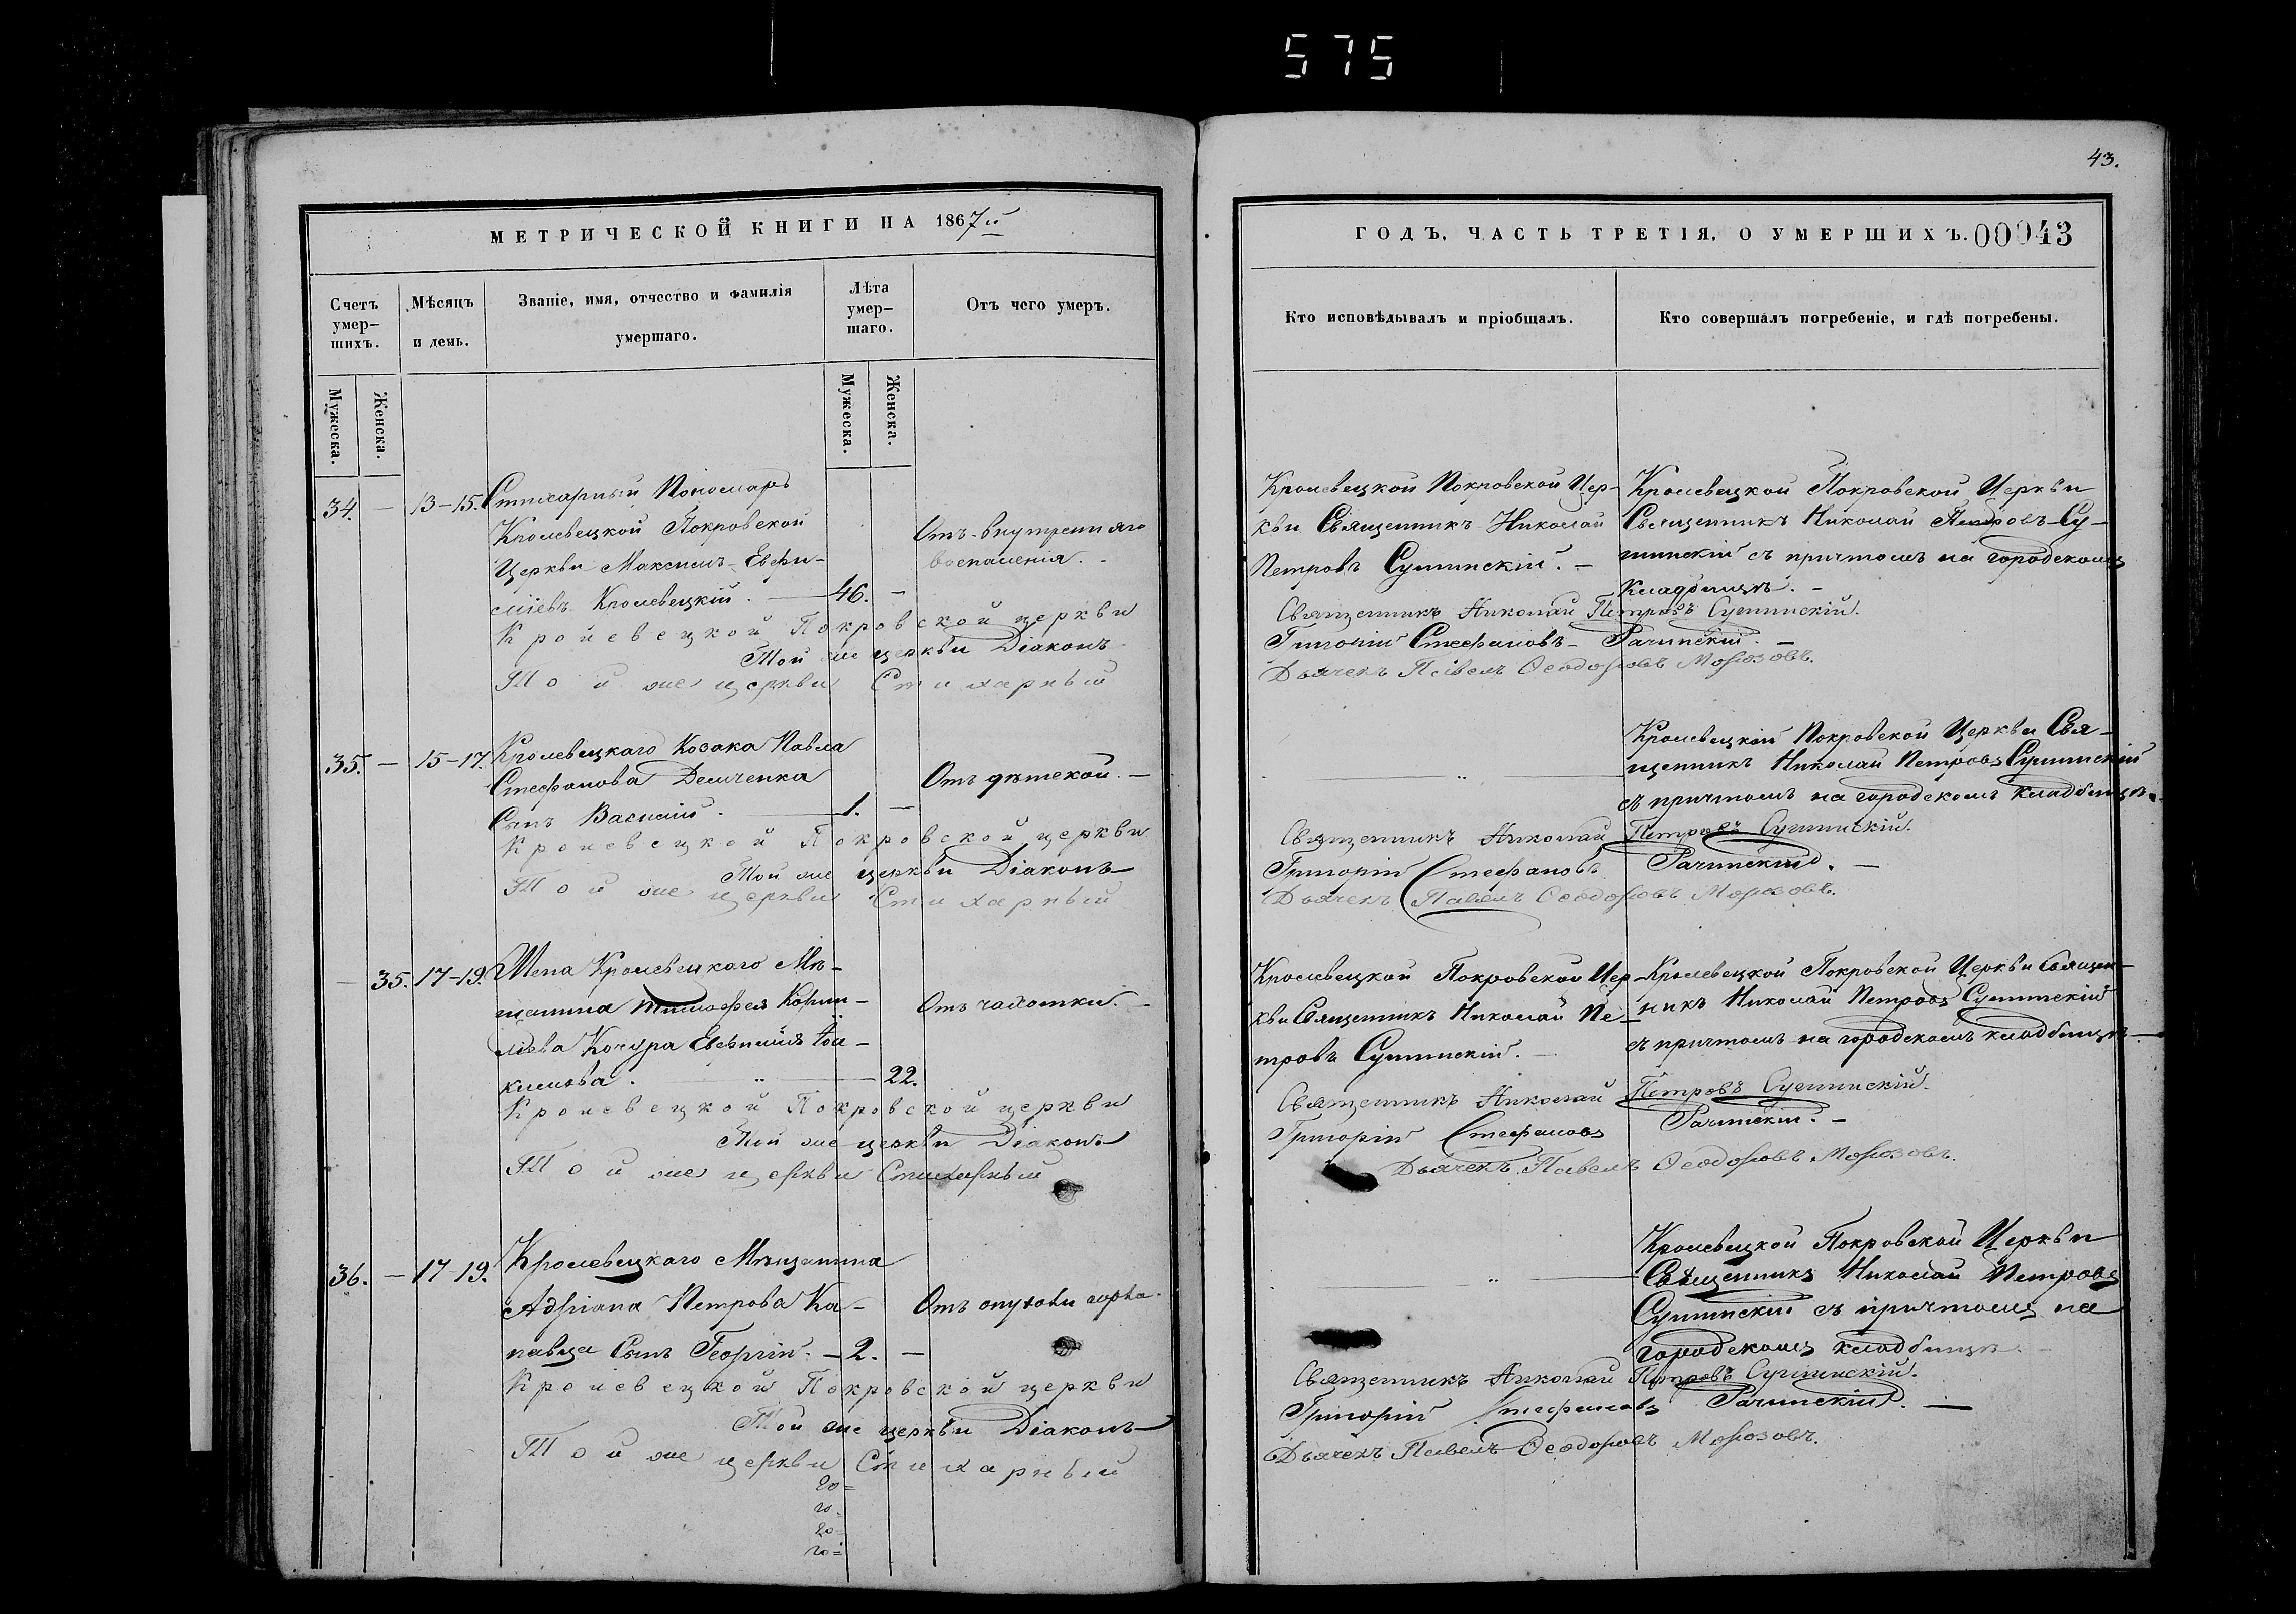 575
43.
МЕТРИЧЕСКОЙ КНИГИ НА 1867й
ГОДЪ, ЧАСТЬ ТРЕТІЯ, О УМЕРШИХЪ. 00043
Счетъ умер-
шихъ.
Мѣсяцъ
и день.
Званіе, имя, отчество и фамилія
умершаго.
Лѣта
умер-
шаго.
Отъ чего умеръ.
Кто исповѣдывалъ и пріобщалъ.
Кто совершалъ погребеніе, и гдѣ погребены.
Мужеска.
Женска.
Мужеска.
Женска.
34. — 13-15. Стихарный Пономарь
Кролевецкой Покровской
Церкви Максимъ Евѳи-
міевъ Кролевецкій. — 46. —
Отъ внутренняго
воспаленія. -
Кролевецкой Покровской Цер-
кви Священникъ Николай
Петровъ Сушинскій. —
Кролевецкой Покровской Церкви
Священникъ Николай Петровъ Су-
шинскій съ причтомъ на городскомъ
кладбищѣ. —
Кролевецкой Покровской церкви Священникъ Николай Петровъ Сушинскій.
Той же церкви Діаконъ Григорій Стефановъ Рачинскій. —
Той же церкви Стихарный Дьячекъ Павелъ Ѳеодоровъ Морозовъ.
35. — 15-17. Кролевецкаго Козака Павла
Стефанова Демченка
Сынъ Василій. — 1. —
Отъ дѣтской. —
Кролевецкій Покровской Церкви Свя-
щенникъ Николай Петровъ Сушинскій
съ причтомъ на городскомъ кладбищѣ.
Кролевецкой Покровской церкви Священникъ Николай Петровъ Сушинскій.
Той же церкви Діаконъ Григорій Стефановъ Рачинскій. —
Той же церкви Стихарный Дьячекъ Павелъ Ѳеодоровъ Морозовъ.
— 35. 17-19. Жена Кролевецкаго Мѣ-
щанина Тимоѳея Корни-
лієва Кочура Евѳимія Іоа-
кимова. — 22.
Отъ чахотки. —
Кролевецкой Покровской Цер-
кви Священникъ Николай Пе-
тровъ Сушинскій. —
Кролевецкой Покровской Церкви Священ-
никъ Николай Петровъ Сушинскій
съ причтомъ на городскомъ кладбищѣ. —
Кролевецкой Покровской церкви Священникъ Николай Петровъ Сушинскій.
Той же церкви Діаконъ Григорій Стефановъ Рачинскій. —
Той же церкви Стихарный Дьячекъ Павелъ Ѳеодоровъ Морозовъ.
36. — 17-19. Кролевецкаго Мѣщанина
Адріана Петрова Ка-
павца Сынъ Георгій. — 2. —
Отъ опухоли горла.
Кролевецкой Покровской Церкви
Священникъ Николай Петровъ
Сушинскій съ причтомъ на
городскомъ кладбищѣ. —
Кролевецкой Покровской церкви Священникъ Николай Петровъ Сушинскій.
Той же церкви Діаконъ Григорій Стефановъ Рачинскій. —
Той же церкви Стихарный Дьячекъ Павелъ Ѳеодоровъ Морозовъ.